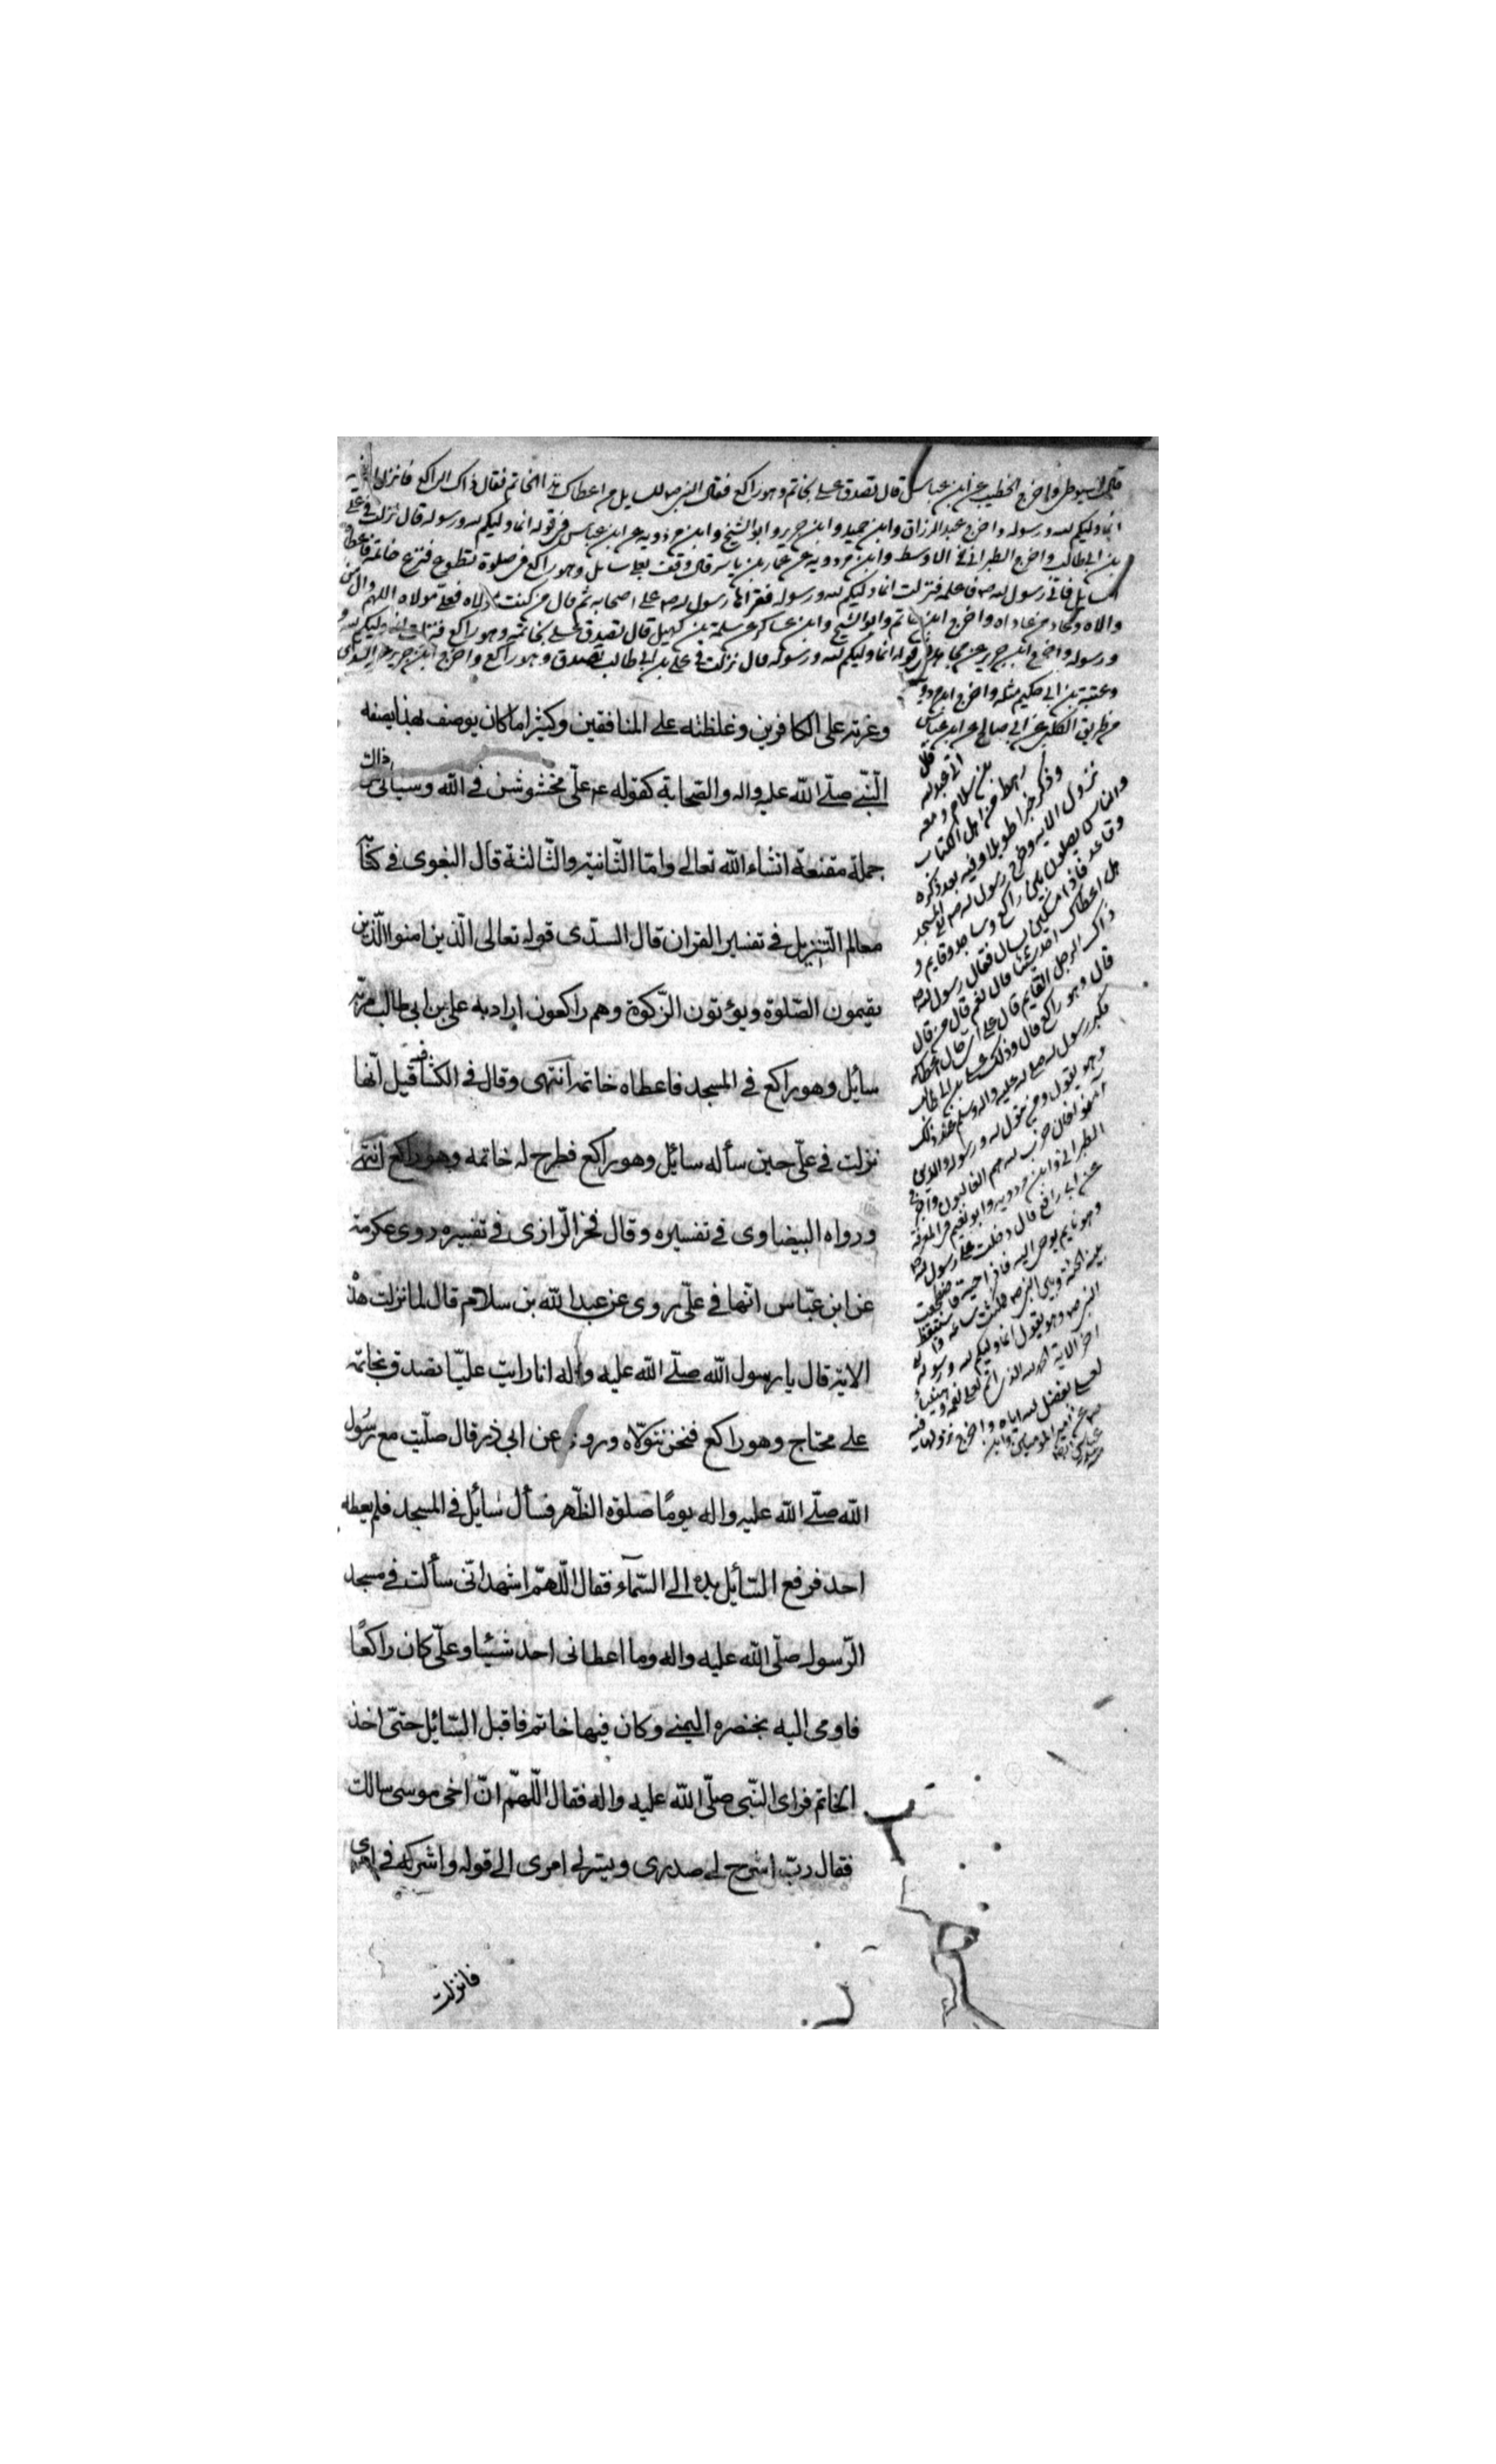 قال السيوطي واخرج الخطيب عن ابن عباس قال تصدق علي بخاتم وهو راكع فقال النبي ص للسايل من اعطاك هذا الخاتم فقال ذاك الراكع فانزل الله
انما وليكم الله ورسوله واخرج عبد الرزاق وابن حميد وابن جرير وابو الشيخ وابن مردويه عن ابن عباس في قوله انما وليكم الله ورسوله قال نزلت في علي
بن ابي طالب واخرج الطبراني في الاوسط وابن مردويه عن عمار بن ياسر قال وقف بعلي سايل وهو راكع في صلوة تطوع فنزع خاتمه فاعطاه
السايل فاتى رسول الله ص فاعلمه فنزلت انما وليكم الله ورسوله فقراها رسول الله ص على اصحابه ثم قال من كنت مولاه فعلي مولاه اللهم وال من
والاه وعاد من عاداه واخرج ابن ابي حاتم وابو الشيخ وابن عساكر عن سلمة بن كهيل قال تصدق علي بخاتمه وهو راكع فنزلت انما وليكم الله
ورسوله واخرج ابن جرير عن مجاهد في قوله انما وليكم الله ورسوله قال نزلت في علي بن ابي طالب تصدق وهو راكع واخرج ابن جرير عن السدي
وعتبة بن ابي حكيم مثله واخرج ابن مردويه
من طريق الكلبي عن ابي صالح عن ابن عباس
قال
اتى عبد الله
بن سلام ومعه
رهط من اهل الكتاب
وذكر خبرا طويلا وفيه بعد ذكره
نزول الاية وخرج رسول الله ص الى المسجد
والناس يصلون بين راكع وساجد وقايم و
وقاعد فاذا مسكين يسال فقال رسول الله ص
هل اعطاك احد شيئا قال نعم قال من قال
ذاك الرجل القايم قال على اي حال اعطاكه
قال وهو راكع قال وذلك علي بن ابي طالب
فكبر رسول الله صلى الله عليه واله وسلم عند ذلك
وهو يقول ومن يتول الله ورسوله والذين
امنوا فان حزب الله هم الغالبون واخرج
الطبراني وابن مردويه وابو نعيم في المعرفة
عن ابي رافع قال دخلت على رسول الله ص
وهو نايم يوحى اليه فاذا حية فاضطجعت
بين الحية وبين النبي ص فمكثت ساعة فاستيقظ
النبي ص وهو يقول انما وليكم الله ورسوله
الاية الحمد لله الذي اتم لعلي نعمه وهنيئا
لعلي بفضل الله اياه واخرج نزولها فيه
وغرته على الكافرين وغلظته على المنافقين وكثيرا ما كان يوصف بهذا يصفه
ذلك
النّبي صلّى الله عليه واله والصّحابة كقوله ع علّى مخشوشن في الله وسياتى
جملة مقنعة انشاء الله تعالى وامّا الثّانية والثّالثة قال البغوى في كتاب
معالم التّنزيل في تفسير القران قال السدّى قوله تعالى الّذين امنوا الّذين
يقيمون الصّلوة ويؤتون الزّكوة وهم راكعون اراد به على بن ابى طالب مرّ به
سائل وهو راكع في المسجد فاعطاه خاتمه انتهى وقال في الكشّاف قيل انّها
نزلت في علّى حين سأله سائل وهو راكع فطرح له خاتمه وهو راكع انتهى
ورواه البيضاوى في تفسيره وقال فخر الرّازى في تفسيره روى عكرمة
عن ابن عبّاس انّها في علّى روى عن عبد الله بن سلام قال لمّا نزلت هذه
الاية قال يا رسول الله صلّى الله عليه واله انا رايت عليّا تصدق بخاتمه
على محتاج وهو راكع فنحن نتولّاه وروى عن ابى ذر قال صلّيت مع رسول
الله صلّى الله عليه واله يومًا صلوة الظّهر فسأل سائل في المسجد فلم يعطه
احد فرفع السّائل يده الى السّماء فقال اللّهمّ اشهد انّى سألت في مسجد
الرّسول صلّى الله عليه واله وما اعطانى احد شيئا وعلّى كان راكعًا
فاومى اليه بخنصره اليمنى وكان فيها خاتم فاقبل السّائل حتّى اخذ
الخاتم فراى النّبى صلّى الله عليه واله فقال اللّهمّ انّ اخى موسى سالك
فقال ربّ اشرح لى صدرى ويسّر لى امرى الى قوله واشركه في امرى
فانزلت